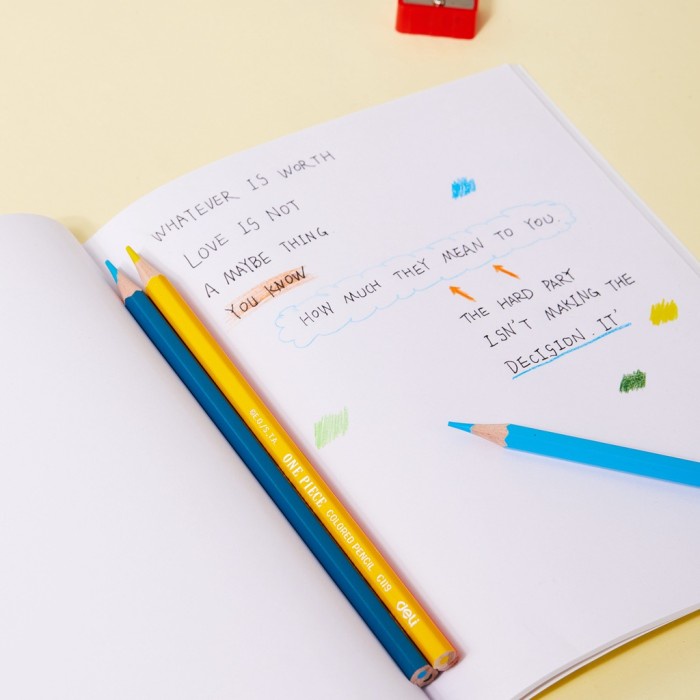 WHATEVER IS WORTH
LOVE IS NOT
A MAYBE THING
YOU KNOW
HOW MUCH THEY MEAN TO YOU.
THE HARD PART
ISN'T MAKING THE
DECISION. IT'
ONE PIECE COLORED PENCIL C119 deli